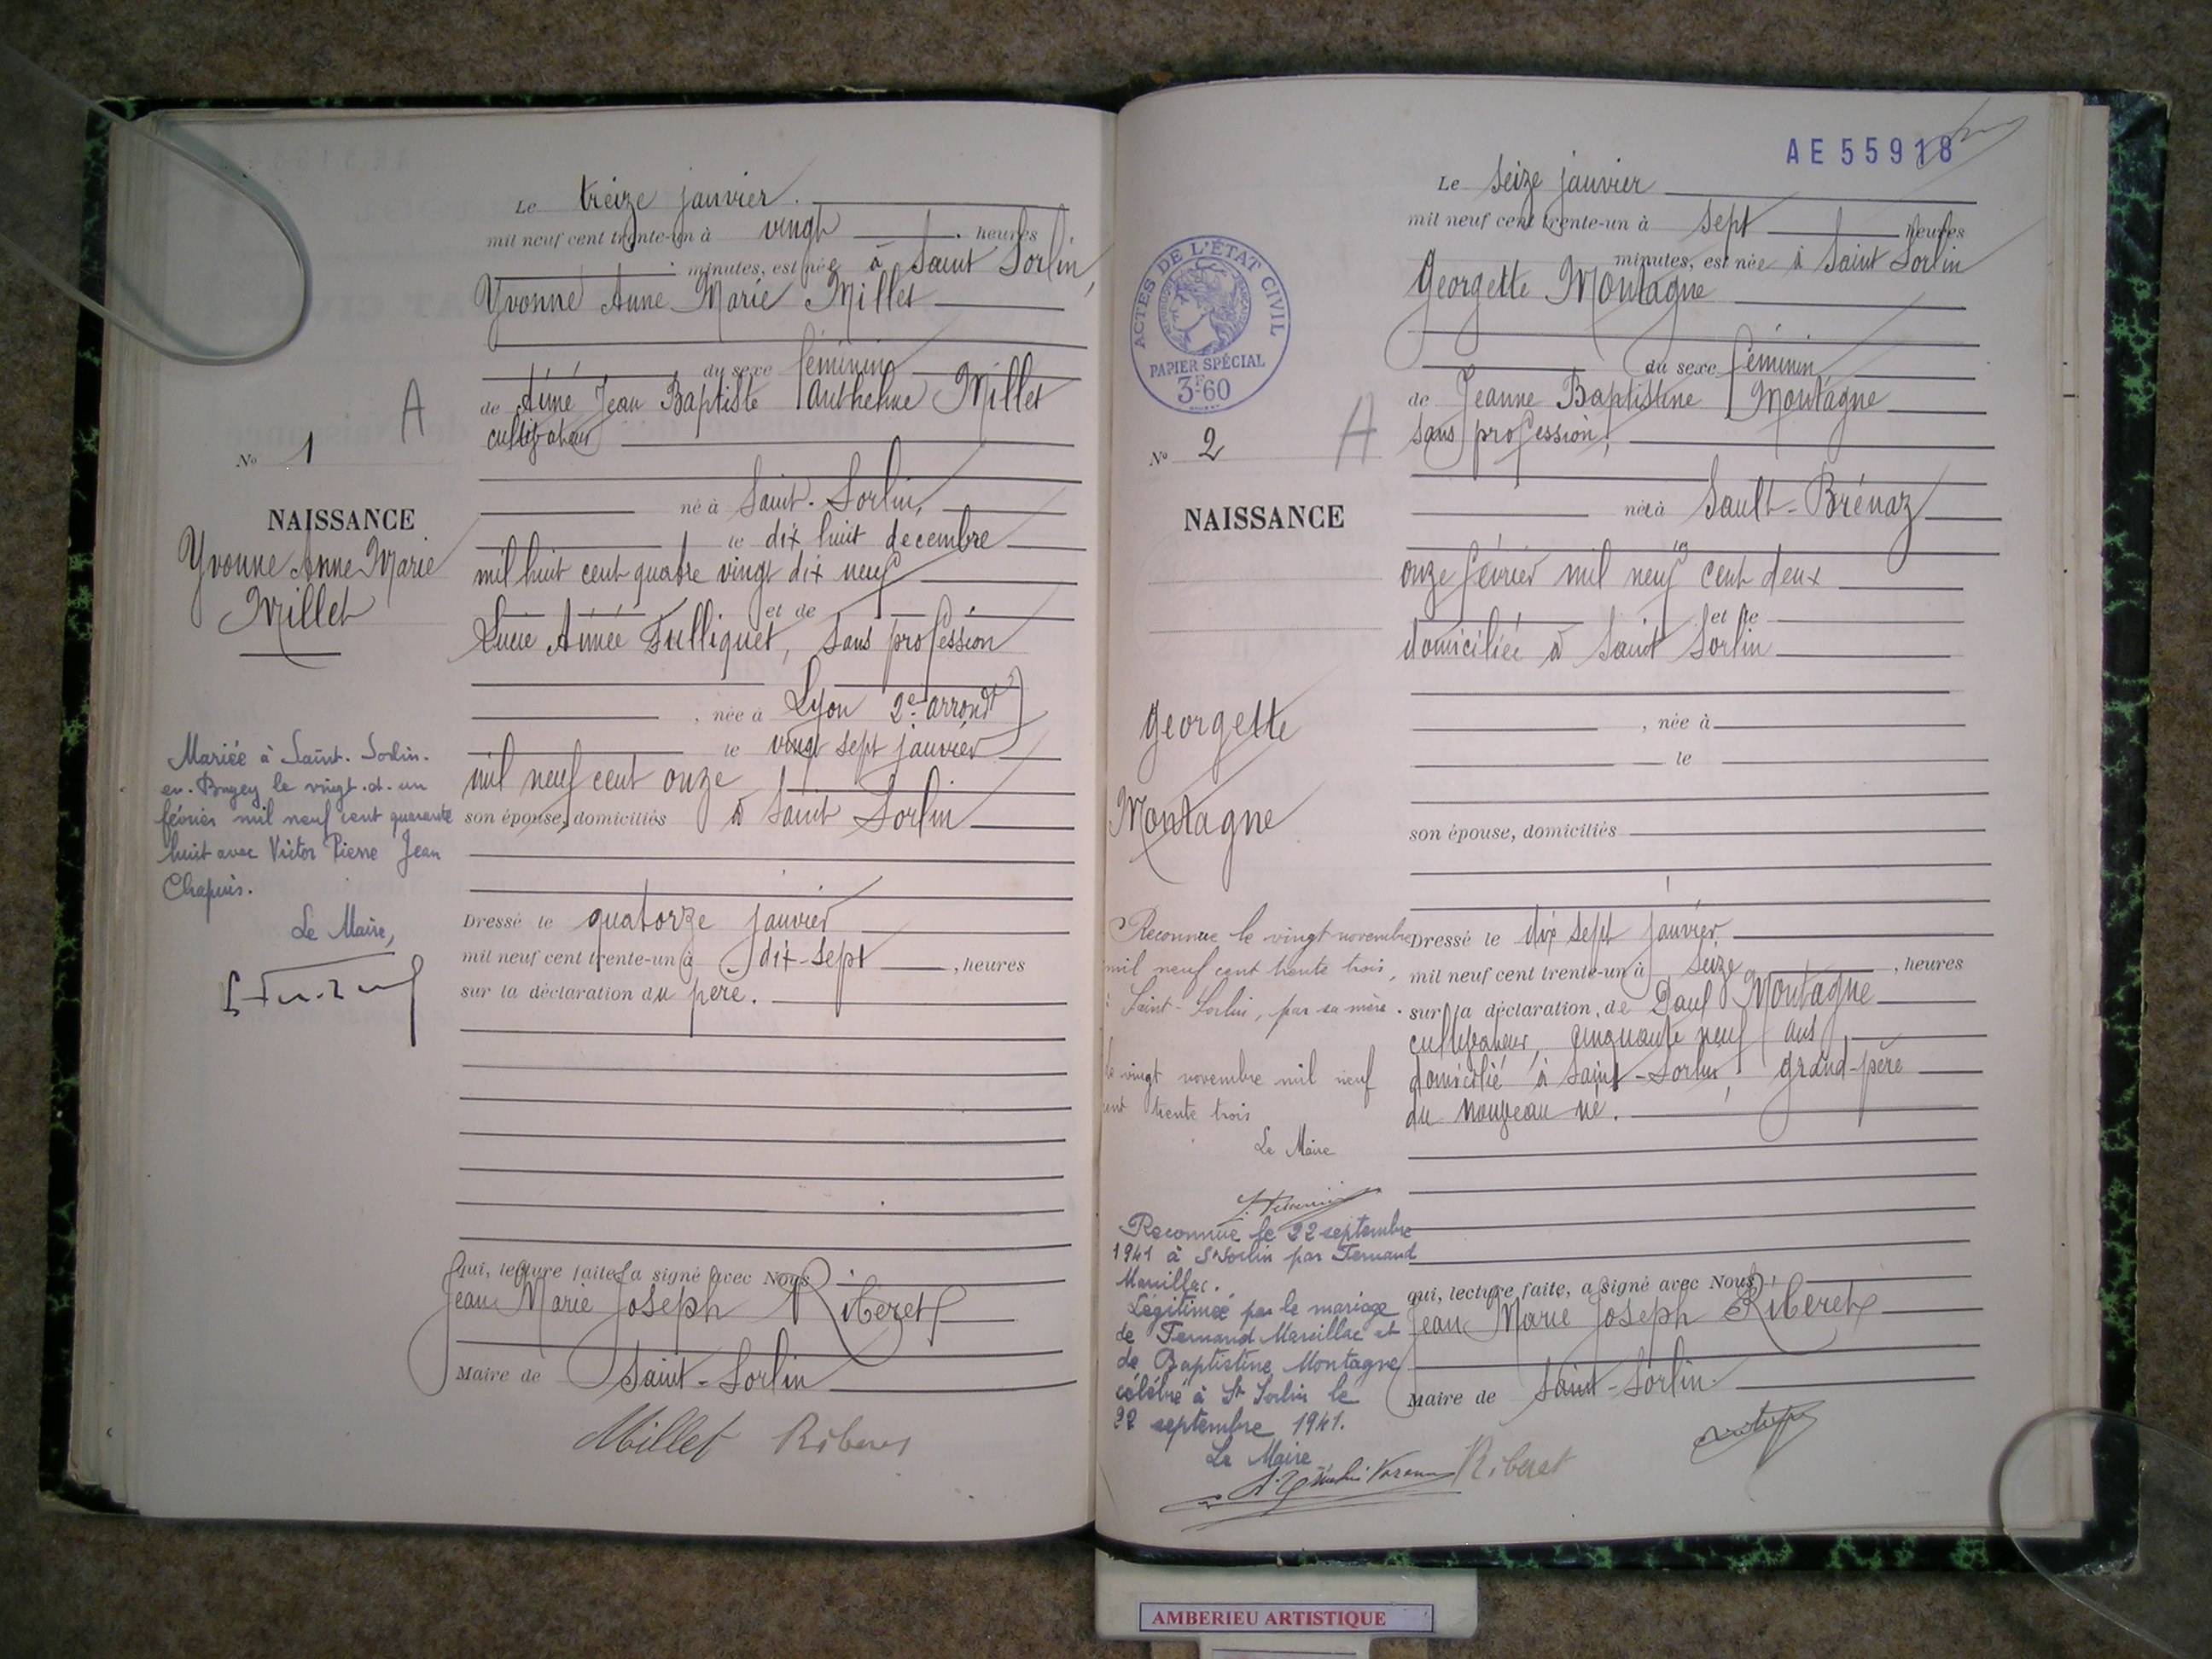 Le treize janvier.
mil neuf cent trente-un à vingt heures
minutes, est née à Saint Sorlin,
Yvonne Anne Marie Millet
du sexe féminin
de Aimé Jean Baptiste Anthelme Millet
cultivateur
né à Saint-Sorlin,
le dix huit decembre
mil huit cent quatre vingt dix neuf
et de
Lucie Aimée Fulliquet, sans profession
, née à Lyon 2e arrondt
le vingt sept janvier
mil neuf cent onze
son épouse, domiciliés à Saint Sorlin
Dressé le quatorze janvier
mil neuf cent trente-un à dix-sept , heures
sur la déclaration du père.
Qui, lecture faite, a signé avec Nous
Jean Marie Joseph Riberet
Maire de Saint-Sorlin
Millet Riberet
A
No 1
NAISSANCE
Yvonne Anne Marie
Millet
Mariée à Saint-Sorlin-
en-Bugey le vingt-et-un
février mil neuf cent quarante
huit avec Victor Pierre Jean
Chapuis.
Le Maire,
AE 55918
Le seize janvier
mil neuf cent trente-un à sept heures
minutes, est née à Saint Sorlin
Georgette Montagne
du sexe féminin
de Jeanne Baptistine Montagne
sans profession,
née à Sault-Brénaz
le
onze février mil neuf cent deux
et de
domiciliée à Saint Sorlin
, née à
le
son épouse, domiciliés
Dressé le dix sept janvier
mil neuf cent trente-un à seize , heures
sur la déclaration, de Paul Montagne
cultivateur, cinquante neuf ans
domicilié à Saint-Sorlin, grand-père
du nouveau né.
qui, lecture faite, a signé avec Nous,
Jean Marie Joseph Riberet
Maire de Saint-Sorlin.
Riberet
ACTES DE L'ÉTAT CIVIL
PAPIER SPÉCIAL
3F60
No 2
A
NAISSANCE
Georgette
Montagne
Reconnue le vingt novembre
mil neuf cent trente trois,
Saint-Sorlin, par sa mère.
le vingt novembre mil neuf
cent trente trois
Le Maire
Reconnue le 22 septembre
1941 à St Sorlin par Fernand
Marillac.
Légitimée par le mariage
de Fernand Marcillac et
de Baptistine Montagne
célébré à St Sorlin le
22 septembre 1941.
Le Maire
AMBERIEU ARTISTIQUE